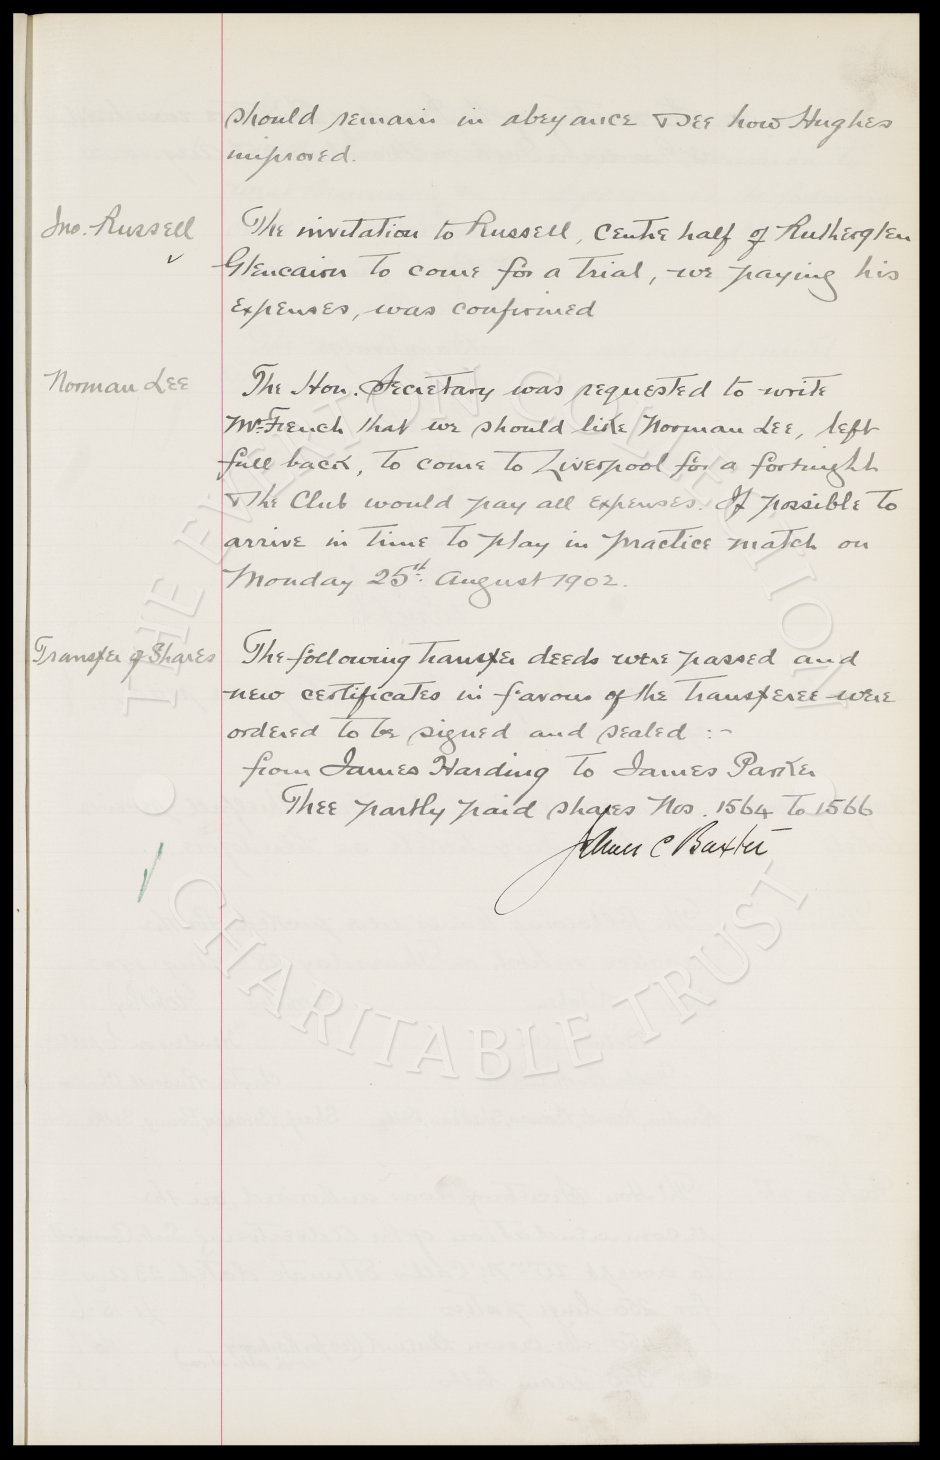 should remain in abeyance & see how Hughes
improved.
Jno. Russell
The invitation to Russell, centre half of Rutherglen
Glencairn to come for a trial, we paying his
expenses, was confirmed
Norman Lee
The Hon. Secretary was requested to write
Mr. French that we should like Norman Lee, left
full back, to come to Liverpool for a fortnight
& the Club would pay all expenses. If possible to
arrive in time to play in practice match on
Monday 25th. August 1902.
Transfer of Shares
The following transfer deeds were passed and
new certificates in favour of the transferee were
ordered to be signed and sealed :-
from James Harding to James Parker
Thee partly paid shares Nos. 1564 to 1566
James C Baxter
THE EVERTON COLLECTION
CHARITABLE TRUST